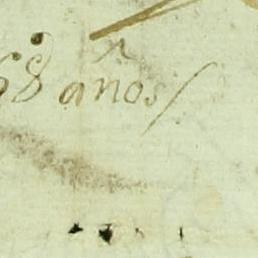 68 años/